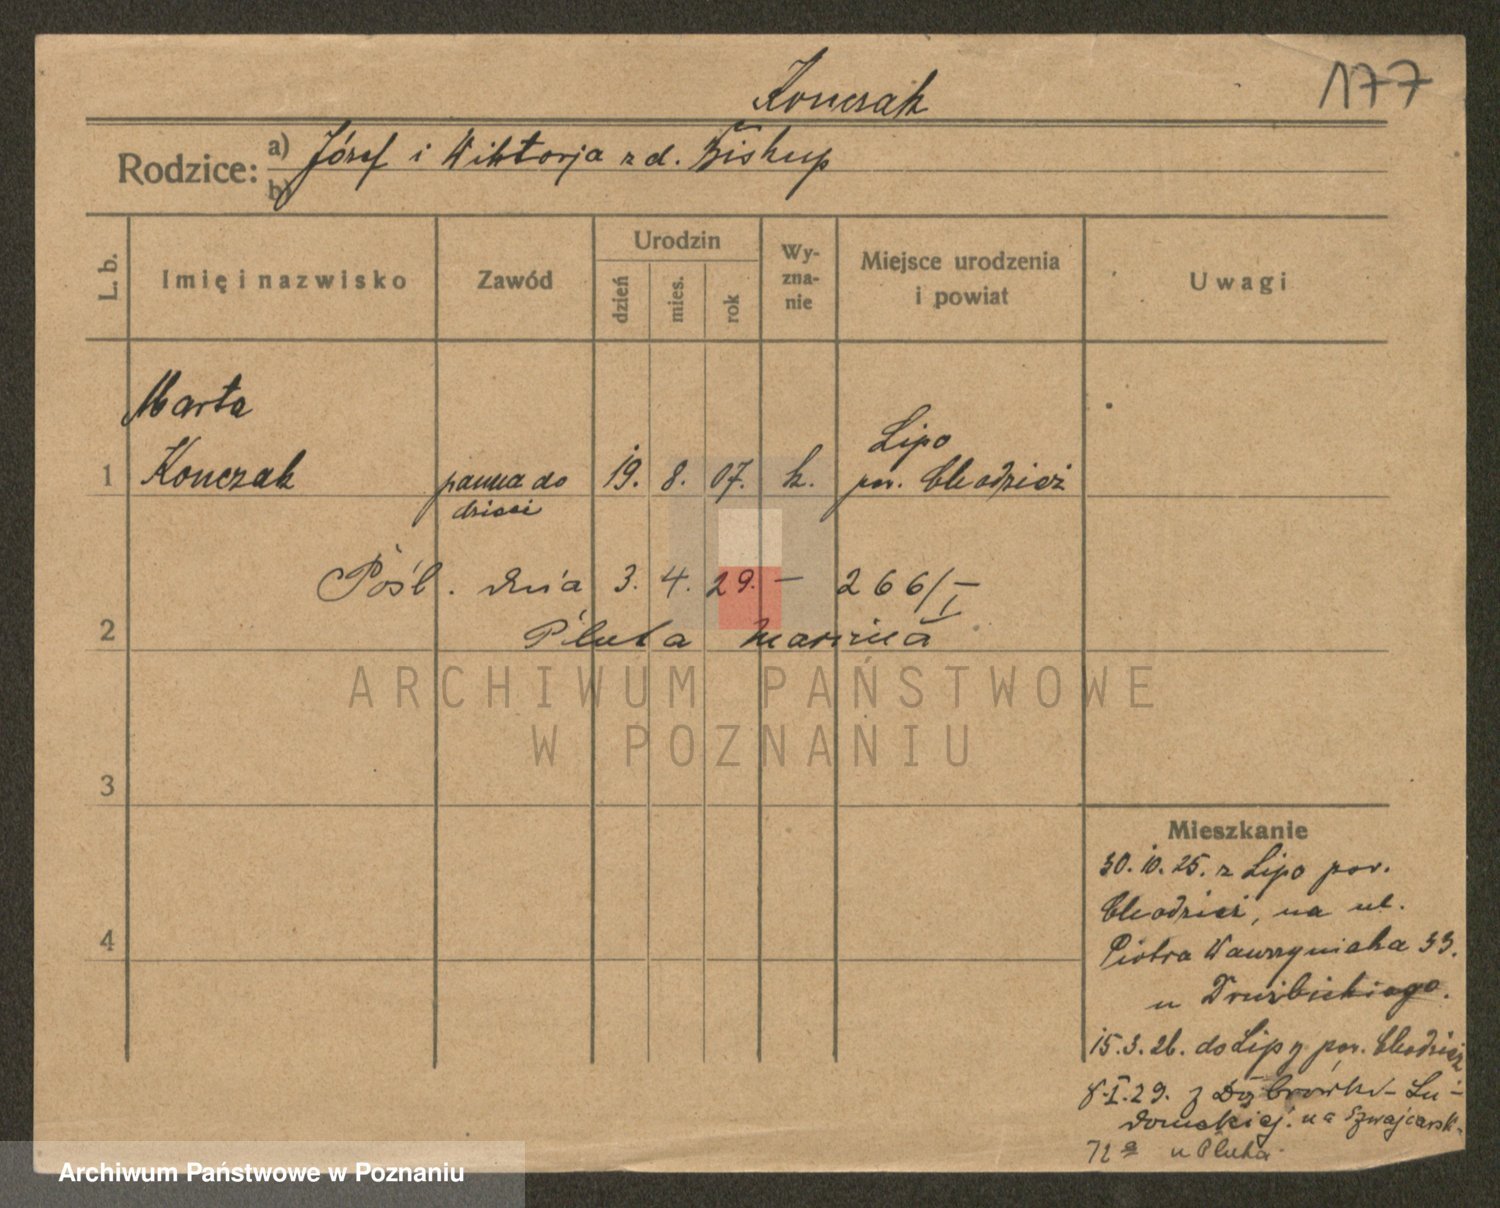 Konczak
177
Rodzice: a) Józef i Wiktorja z d. Biskup
b)
L. b.
Imię i nazwisko
Zawód
Urodzin
dzień
mies.
rok
Wy-
zna-
nie
Miejsce urodzenia
i powiat
Uwagi
Marta
1 Konczak panna do dzieci 19. 8. 07. k. Lipo pow. Chodzież
Pośl. dnia 3. 4. 29. — 266/I
2 Pluta
ARCHIWUM PAŃSTWOWE
W POZNANIU
3
4
Mieszkanie
30.10.25. z Lipo pow.
Chodzież, na ul.
Piotra Wawrzyniaka 33.
u Drużbickiego.
15.3.26. do Lipy pow. Chodzież
8.I.29. z Dąbrówki Lu-
domskiej. na Szwajcarsk.
72a u Pluta
Archiwum Państwowe w Poznaniu